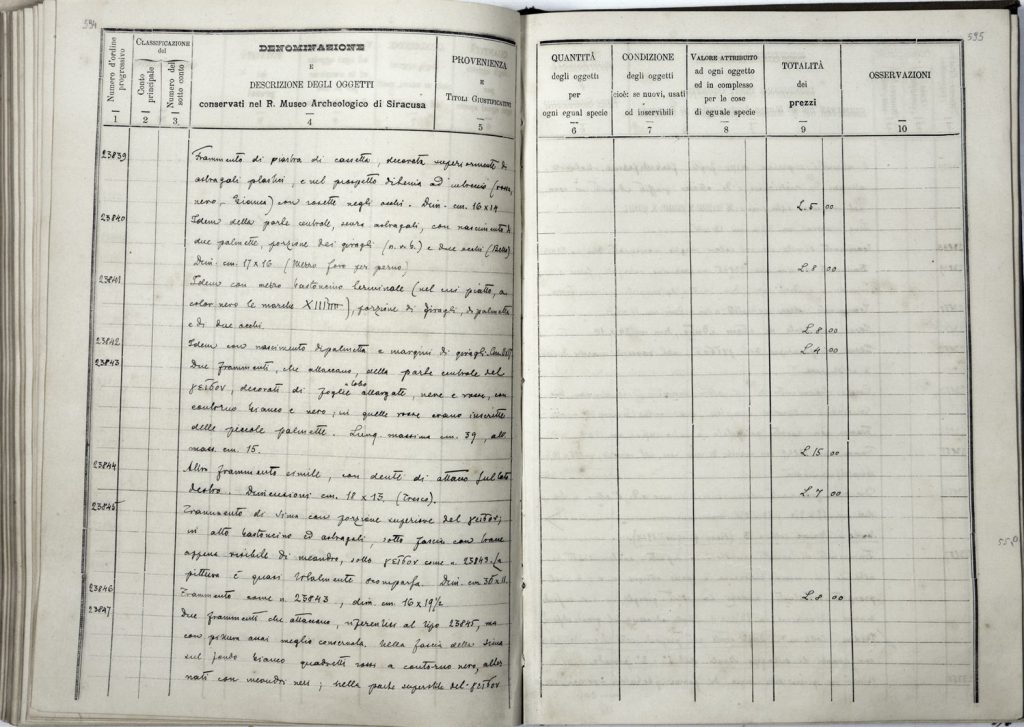 594
Numero d'ordine progressivo
1
CLASSIFICAZIONE del
Conto principale
2
Numero del sotto conto
3
DENOMINAZIONE
E
DESCRIZIONE DEGLI OGGETTI
conservati nel R. Museo Archeologico di Siracusa
4
PROVENIENZA
E
TITOLI GIUSTIFICATIVI
5
23839 Frammento di piastra di cassetta, decorata superiormente di
astragali plastici, e nel prospetto di ad intreccio (rosso,
nero, bianco) con rosette negli occhi. Dim. cm. 16 x 14
23840 Idem della parte centrale, senza astragali, con nascimento di
due palmette, porzione dei giragli (n. e b.) e due occhi
Dim. cm. 17 x 16 (Mezzo foro per perno)
23841 Idem con mezzo bastoncino terminale (nel cui piatto, a
color nero le marche), porzione di giragli, di palmetta
e di due occhi.
23842 Idem con nascimento di palmetta e margini di giragli.
23843 Due frammenti, che attaccano, della parte centrale del
γεῖσον, decorati di foglie a lobo allargate, nere e rosse, con
contorno bianco e nero; in quelle rosse erano inscritte
delle piccole palmette. Lung. massima cm. 39, alt.
mass. cm. 15.
23844 Altro frammento simile, con denti di attacco sul lato
destro. Dimensioni cm. 18 x 13 (Fresco).
23845 Frammento di sima con porzione superiore del γεῖσον;
in alto bastoncino ed astragali, sotto fascia con tracce
appena visibile di meandro, sotto γεῖσον come n. 23843. La
pittura è quasi totalmente scomparsa. Dim. cm
23846 Frammento come n. 23843, dim. cm. 16 x 19½
23847 Due frammenti che attaccano, riferentisi al tipo 23845, ma
con pittura assai meglio conservata. Nella fascia della sima
sul fondo bianco quadretti rossi a contorno nero, alter
nati con meandri neri; nella parte superstite del γεῖσον
595
QUANTITÀ
degli oggetti
per
ogni egual specie
6
CONDIZIONE
degli oggetti
cioè: se nuovi, usati
od inservibili
7
VALORE ATTRIBUITO
ad ogni oggetto
ed in complesso
per le cose
di eguale specie
8
TOTALITÀ
dei
prezzi
9
OSSERVAZIONI
10
L. 5 00
L. 8 00
L. 8 00
L. 4 00
L. 15 00
L. 7 00
L. 8 00